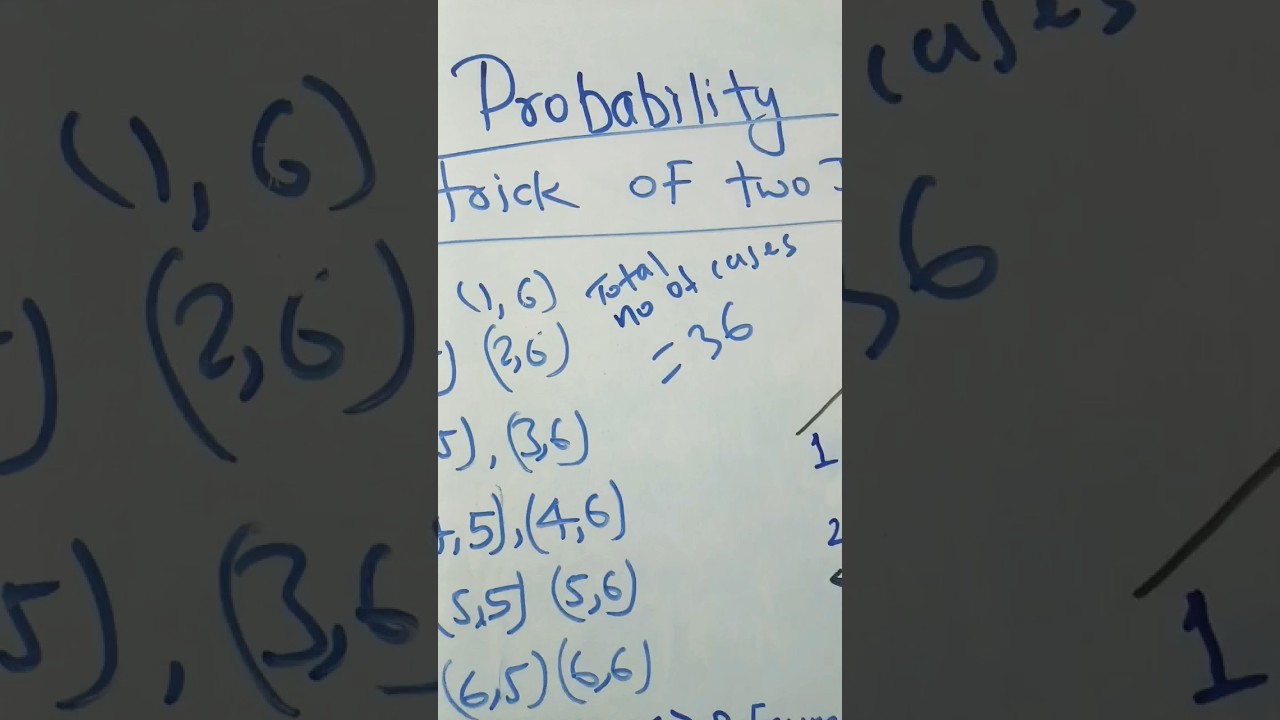 Probability
trick of two
(1,6) Total no of cases
= 36
(2,6)
5), (3,6)
,5), (4,6)
(5,5) (5,6)
(6,5) (6,6)
1
2